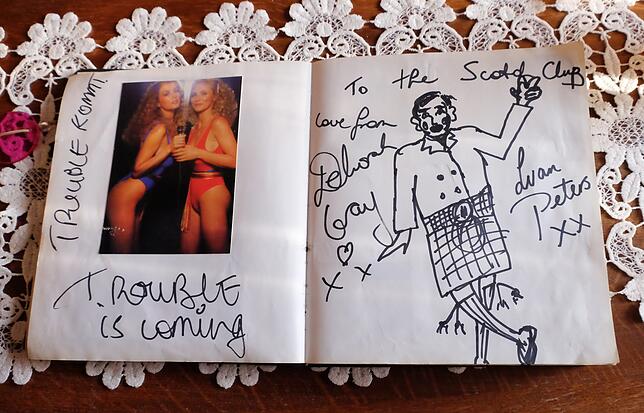 TROUBLE KOMMT
TROUBLE
is coming
To the Scotch Club
love from
Deborah
Gray
x x
Ivan
Peters
xx